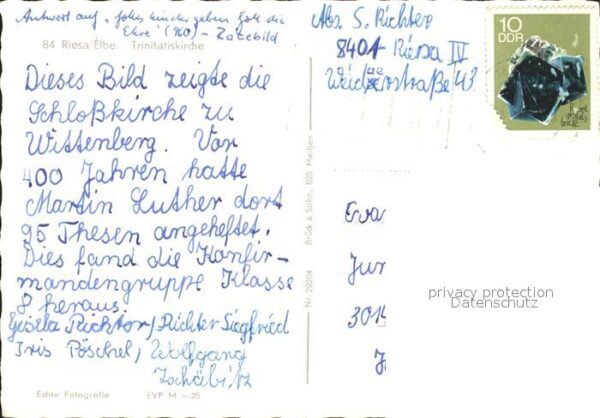 Antwort auf "
Ehre" (160) -
84 Riesa/Elbe. Trinitatiskirche
Dieses Bild zeigte die
Schloßkirche zu
Wittenberg. Vor
400 Jahren hatte
Martin Luther dort
95 Thesen angeheftet.
Dies fand die Konfir-
mandengruppe Klasse
8 heraus.
Gisela Richter, Richter Siegfried
Iris Pöschel, Wolfgang
Zschäbitz
Echte Fotografie EVP M –.25
Nr. 29204 Brück & Sohn, 825 Meißen
Abs. S. Richter
8401 Riesa IV
43
10
DDR
Eva
Jur
301
J
privacy protection
Datenschutz